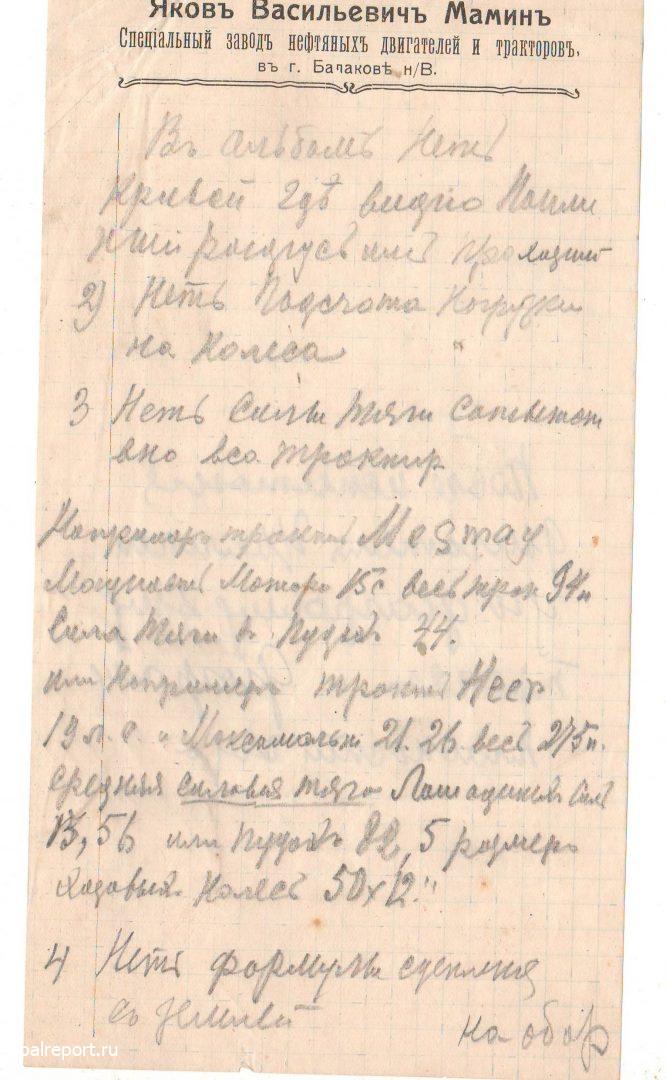 Яковъ Васильевичъ Маминъ
Спецiальный заводъ нефтяныхъ двигателей и тракторовъ,
въ г. Балаковѣ н/В.
Въ альбомъ Нетъ
Кривой гдѣ видно
или
2) Нетъ Подсчота Нагрузки
на Колеса
3 Нетъ Силы тяги
вно веса
трактъ Megmay
Мощность Мотора 15с весъ трак 94п
Сила Тяги в Пудахъ 44.
или Например тракт Неег
19 л. с. и Максимальн 21.26 весъ 275п.
средняя силовая тяга Лошадиных Сил
13,56 или Пудовъ 82,5 размеръ
Колесъ 50x12"
4 Нетъ формулы сцепления
съ землей
на обор
palreport.ru